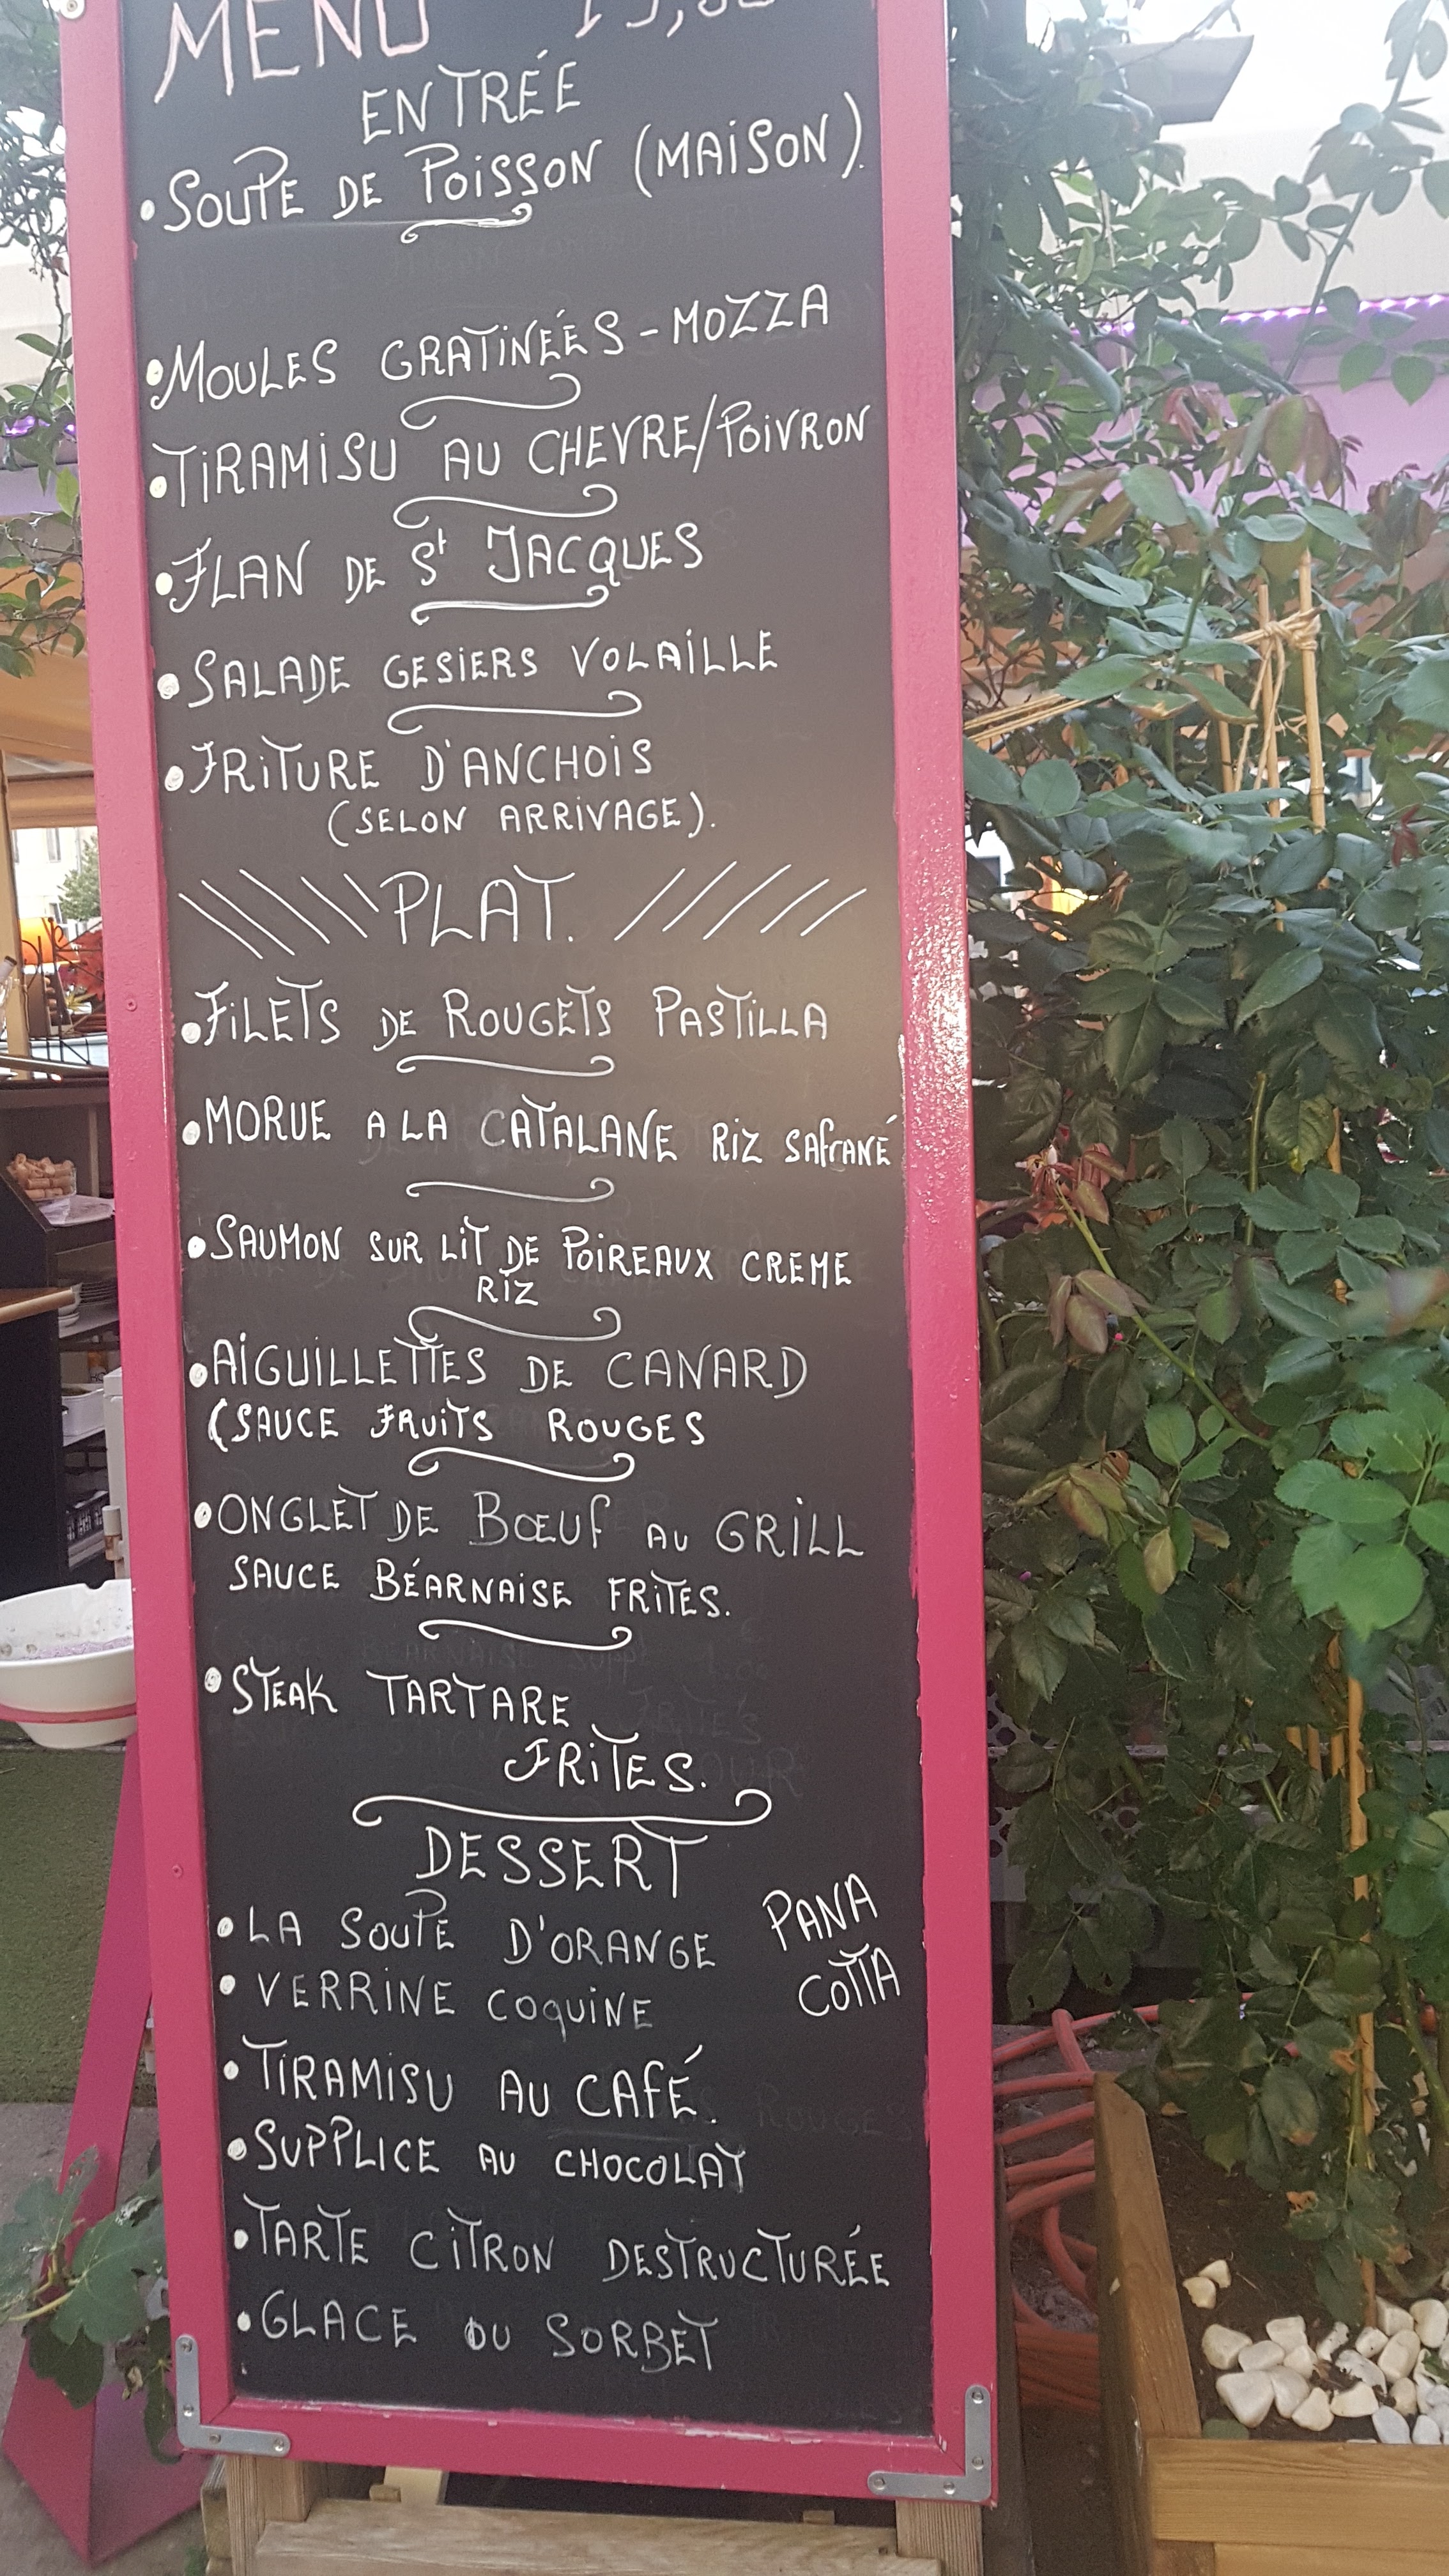 MENU
ENTRÉE
• SOUPE DE POISSON (MAISON).
• MOULES GRATINÉES - MOZZA
• TIRAMISU AU CHEVRE/POIVRON
• FLAN DE St JACQUES
• SALADE GESIERS VOLAILLE
• FRITURE D'ANCHOIS
(SELON ARRIVAGE).
PLAT.
• FILETS DE ROUGETS PASTILLA
• MORUE A LA CATALANE RIZ SAFRANÉ
• SAUMON SUR LIT DE POIREAUX CREME
RIZ
• AIGUILLETTES DE CANARD
(SAUCE FRUITS ROUGES
• ONGLET DE BŒUF AU GRILL
SAUCE BÉARNAISE FRITES.
• STEAK TARTARE
FRITES.
DESSERT
• LA SOUPE D'ORANGE
PANA
COTTA
• VERRINE COQUINE
• TIRAMISU AU CAFÉ.
• SUPPLICE AU CHOCOLAT
• TARTE CITRON DESTRUCTURÉE
• GLACE OU SORBET